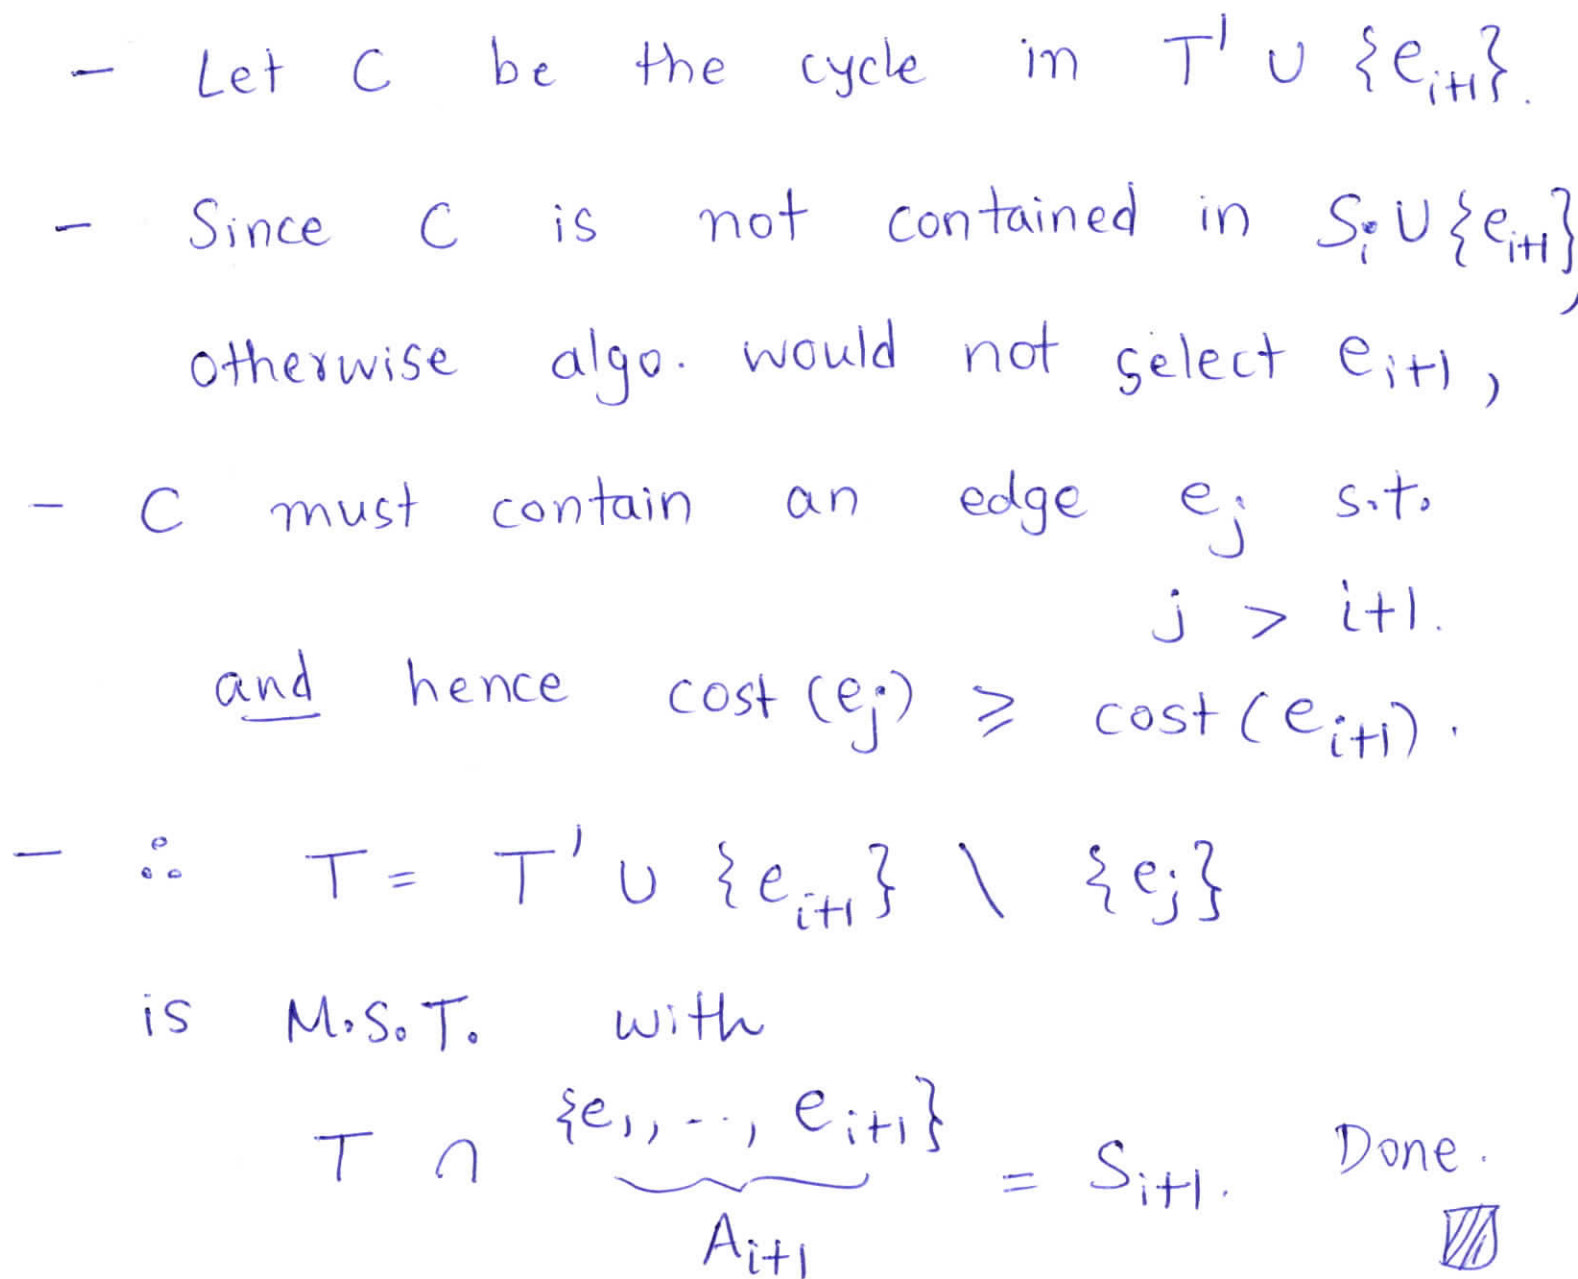 - Let C be the cycle in T' ∪ {e_{i+1}}.
- Since C is not contained in S_i ∪ {e_{i+1}},
otherwise algo. would not select e_{i+1},
- C must contain an edge e_j s.t.
j > i+1.
and hence cost(e_j) ≥ cost(e_{i+1}).
- ∴ T = T' ∪ {e_{i+1}} \ {e_j}
is M.S.T. with
T ∩ {e_1, ..., e_{i+1}} = S_{i+1}. Done.
A_{i+1}